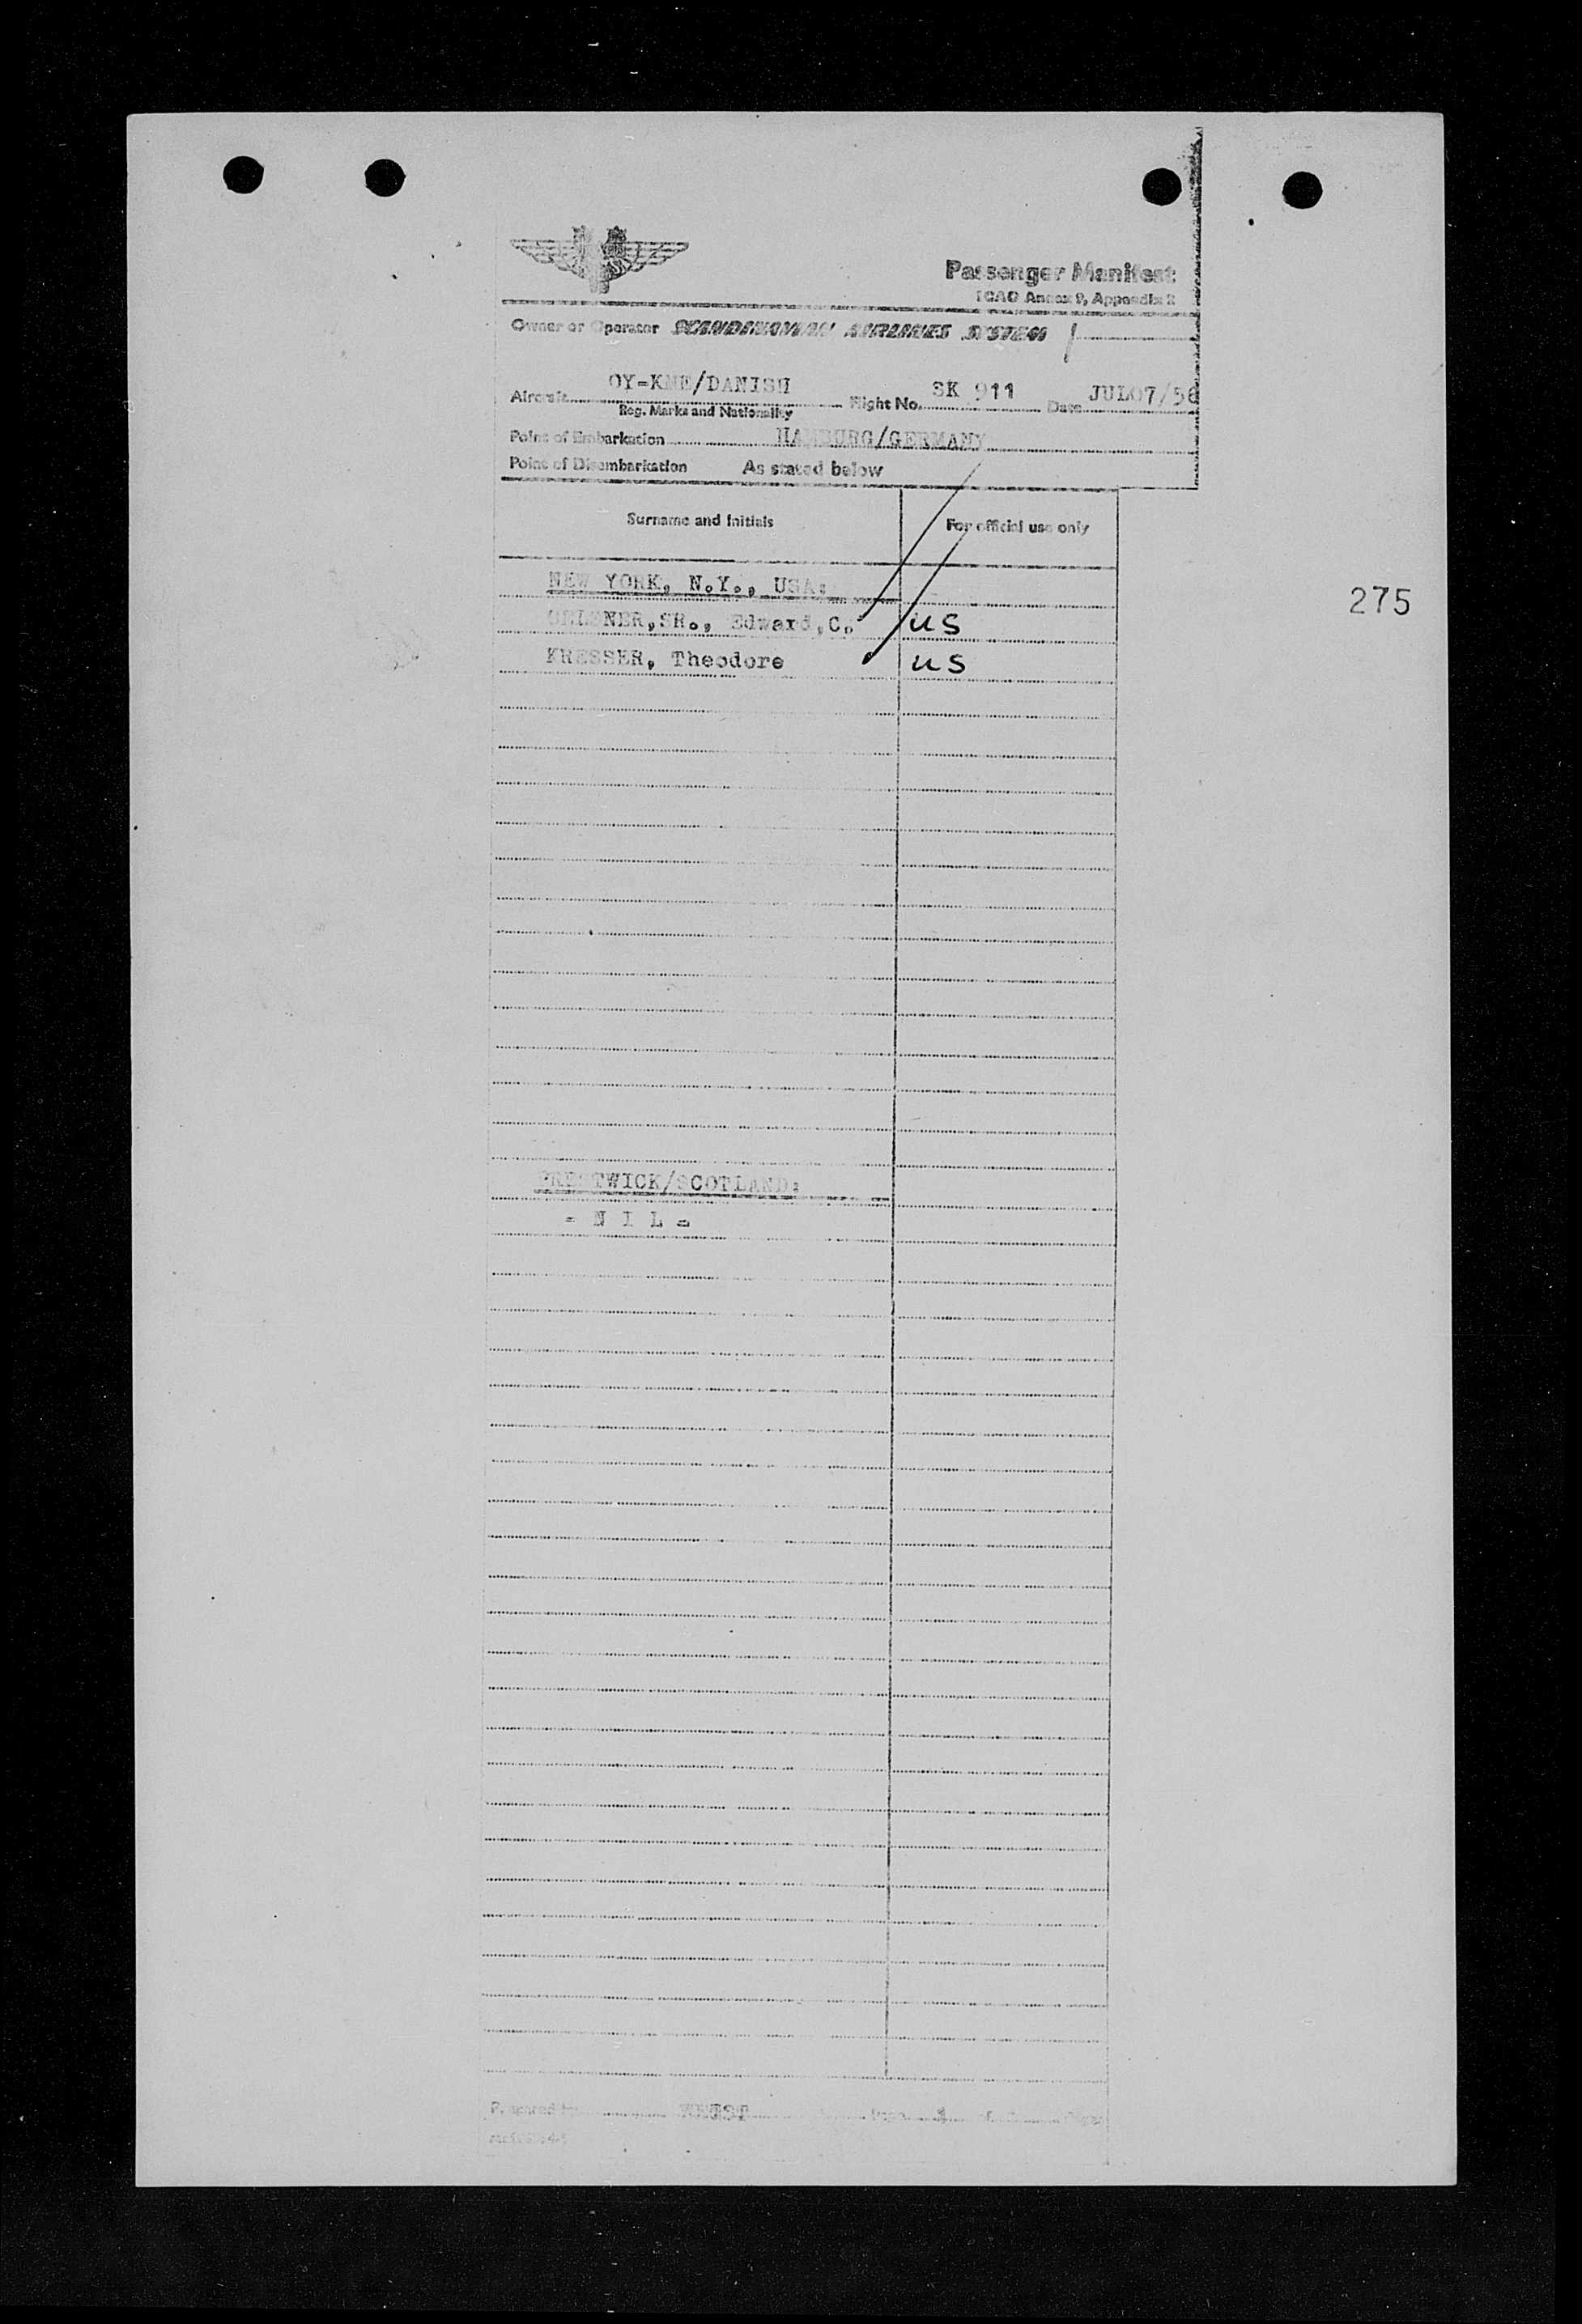 Passenger Manifest
ICAO Annex 9, Appendix 2
Owner or Operator SCANDINAVIAN AIRLINES SYSTEM
Aircraft OY-KME/DANISH Flight No. SK 911 Date JUL07/56
Reg. Marks and Nationality
Point of Embarkation HAMBURG/GERMANY
Point of Disembarkation As stated below
Surname and Initials For official use only
NEW YORK, N.Y., USA:
275
SR., Edward,C. US
KRESSER, Theodore US
PRESTWICK/SCOTLAND:
- N I L -
Prepared by